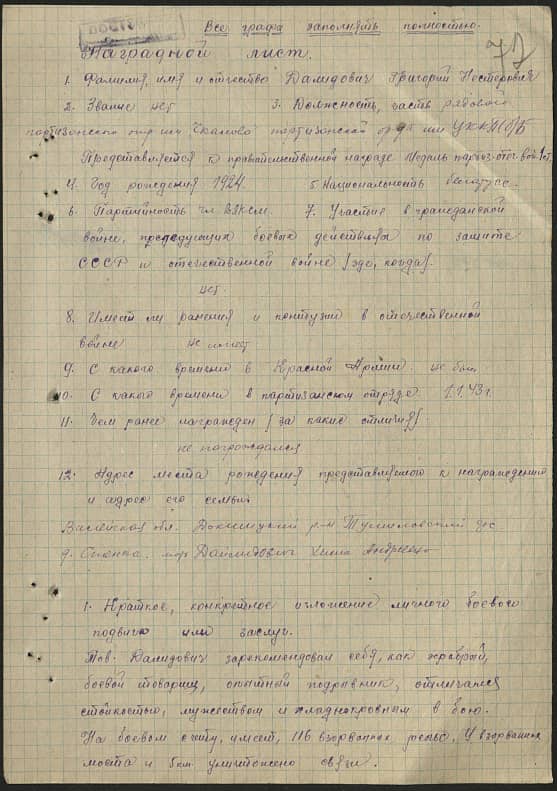 Все графы заполнять полностью.
77
Наградной лист.
1. Фамилия, имя и отчество Дамидович Григорий Нестерович
2. Звание нет 3. Должность, часть рядовой
партизанской партизанской им ЦК КП(б)Б
Представляется к правительственной награде Медаль партиз. отеч. вой. 1 ст.
4. Год рождения 1924. 5. Национальность белорус.
6. Партийность чл. ВЛКСМ. 7. Участие в гражданской
войне, последующих боевых действиях по защите
СССР и отечественной войне [где, когда].
нет.
8. Имеет ли ранения и контузии в отечественной
войне не имеет
9. С какого времени в Красной Армии. не был
10. С какого времени в партизанском отряде. 1.1.43 г.
11. Чем ранее награжден [за какие отличия].
не награждался
12. Адрес места рождения представляемого к награждению
и адрес его семьи.
обл. Докшицкий р-н Тумиловский с/с
д. мать Дамидович Андреевна
1. Краткое, конкретное изложение личного боевого
подвига или заслуг.
Тов. Дамидович зарекомендовал себя, как храбрый,
боевой товарищ, опытный подрывник, отличался
стойкостью, мужеством и хладнокровным в бою.
На боевом счету, имеет, 116 взорванных рельс, 4 взорванных
моста и 5 км. уничтожено связи.